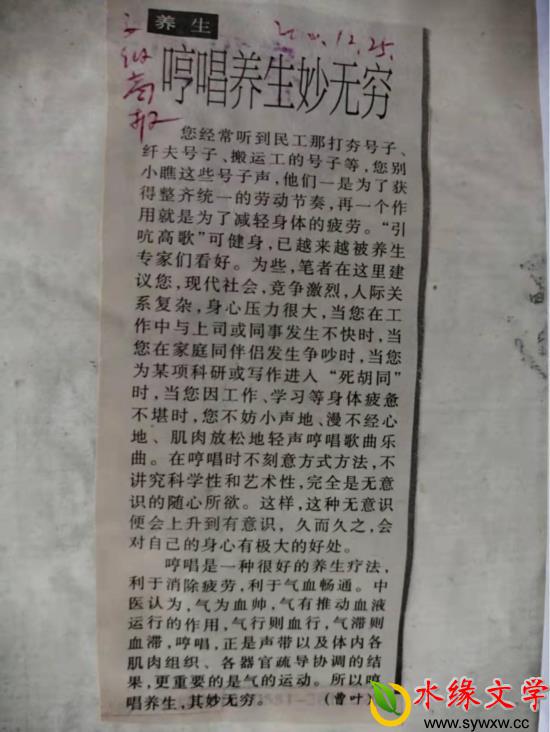 养生
12.25.
哼唱养生妙无穷
商报
您经常听到民工那打夯号子、
纤夫号子、搬运工的号子等,您别
小瞧这些号子声,他们一是为了获
得整齐统一的劳动节奏,再一个作
用就是为了减轻身体的疲劳。“引
吭高歌”可健身,已越来越被养生
专家们看好。为些,笔者在这里建
议您,现代社会,竞争激烈,人际关
系复杂,身心压力很大,当您在工
作中与上司或同事发生不快时,当
您在家庭同伴侣发生争吵时,当您
为某项科研或写作进入“死胡同”
时,当您因工作、学习等身体疲惫
不堪时,您不妨小声地、漫不经心
地、肌肉放松地轻声哼唱歌曲乐
曲。在哼唱时不刻意方式方法,不
讲究科学性和艺术性,完全是无意
识的随心所欲。这样,这种无意识
便会上升到有意识,久而久之,会
对自己的身心有极大的好处。
哼唱是一种很好的养生疗法,
利于消除疲劳,利于气血畅通。中
医认为,气为血帅,气有推动血液
运行的作用,气行则血行,气滞则
血滞,哼唱,正是声带以及体内各
肌肉组织、各器官疏导协调的结
果,更重要的是气的运动。所以哼
唱养生,其妙无穷。 (曾叶)
水缘文学
www.sywxw.cc